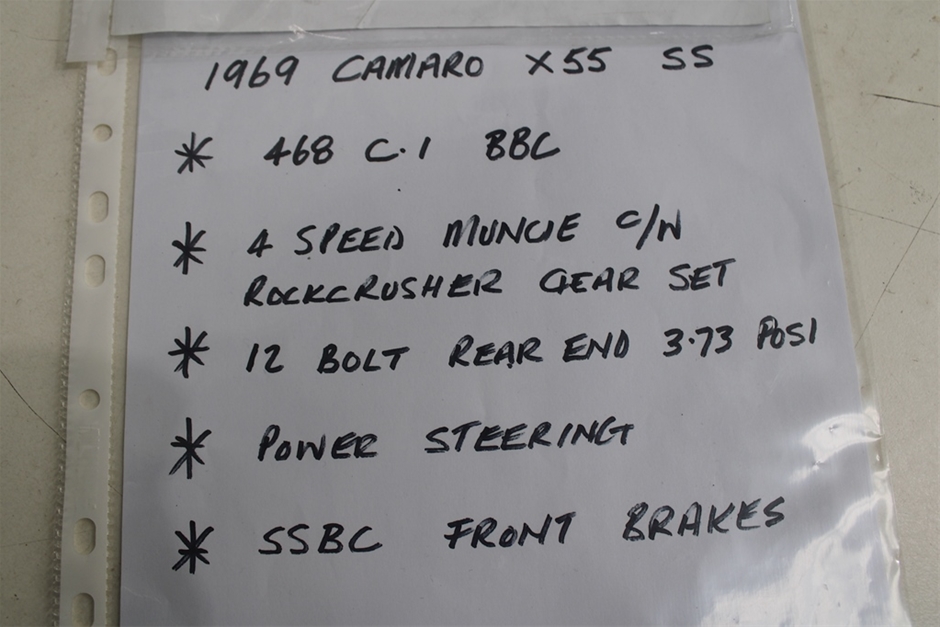 1969 CAMARO X55 SS
* 468 C.I BBC
* 4 SPEED MUNCIE C/W
ROCKCRUSHER GEAR SET
* 12 BOLT REAR END 3.73 POSI
* POWER STEERING
* SSBC FRONT BRAKES